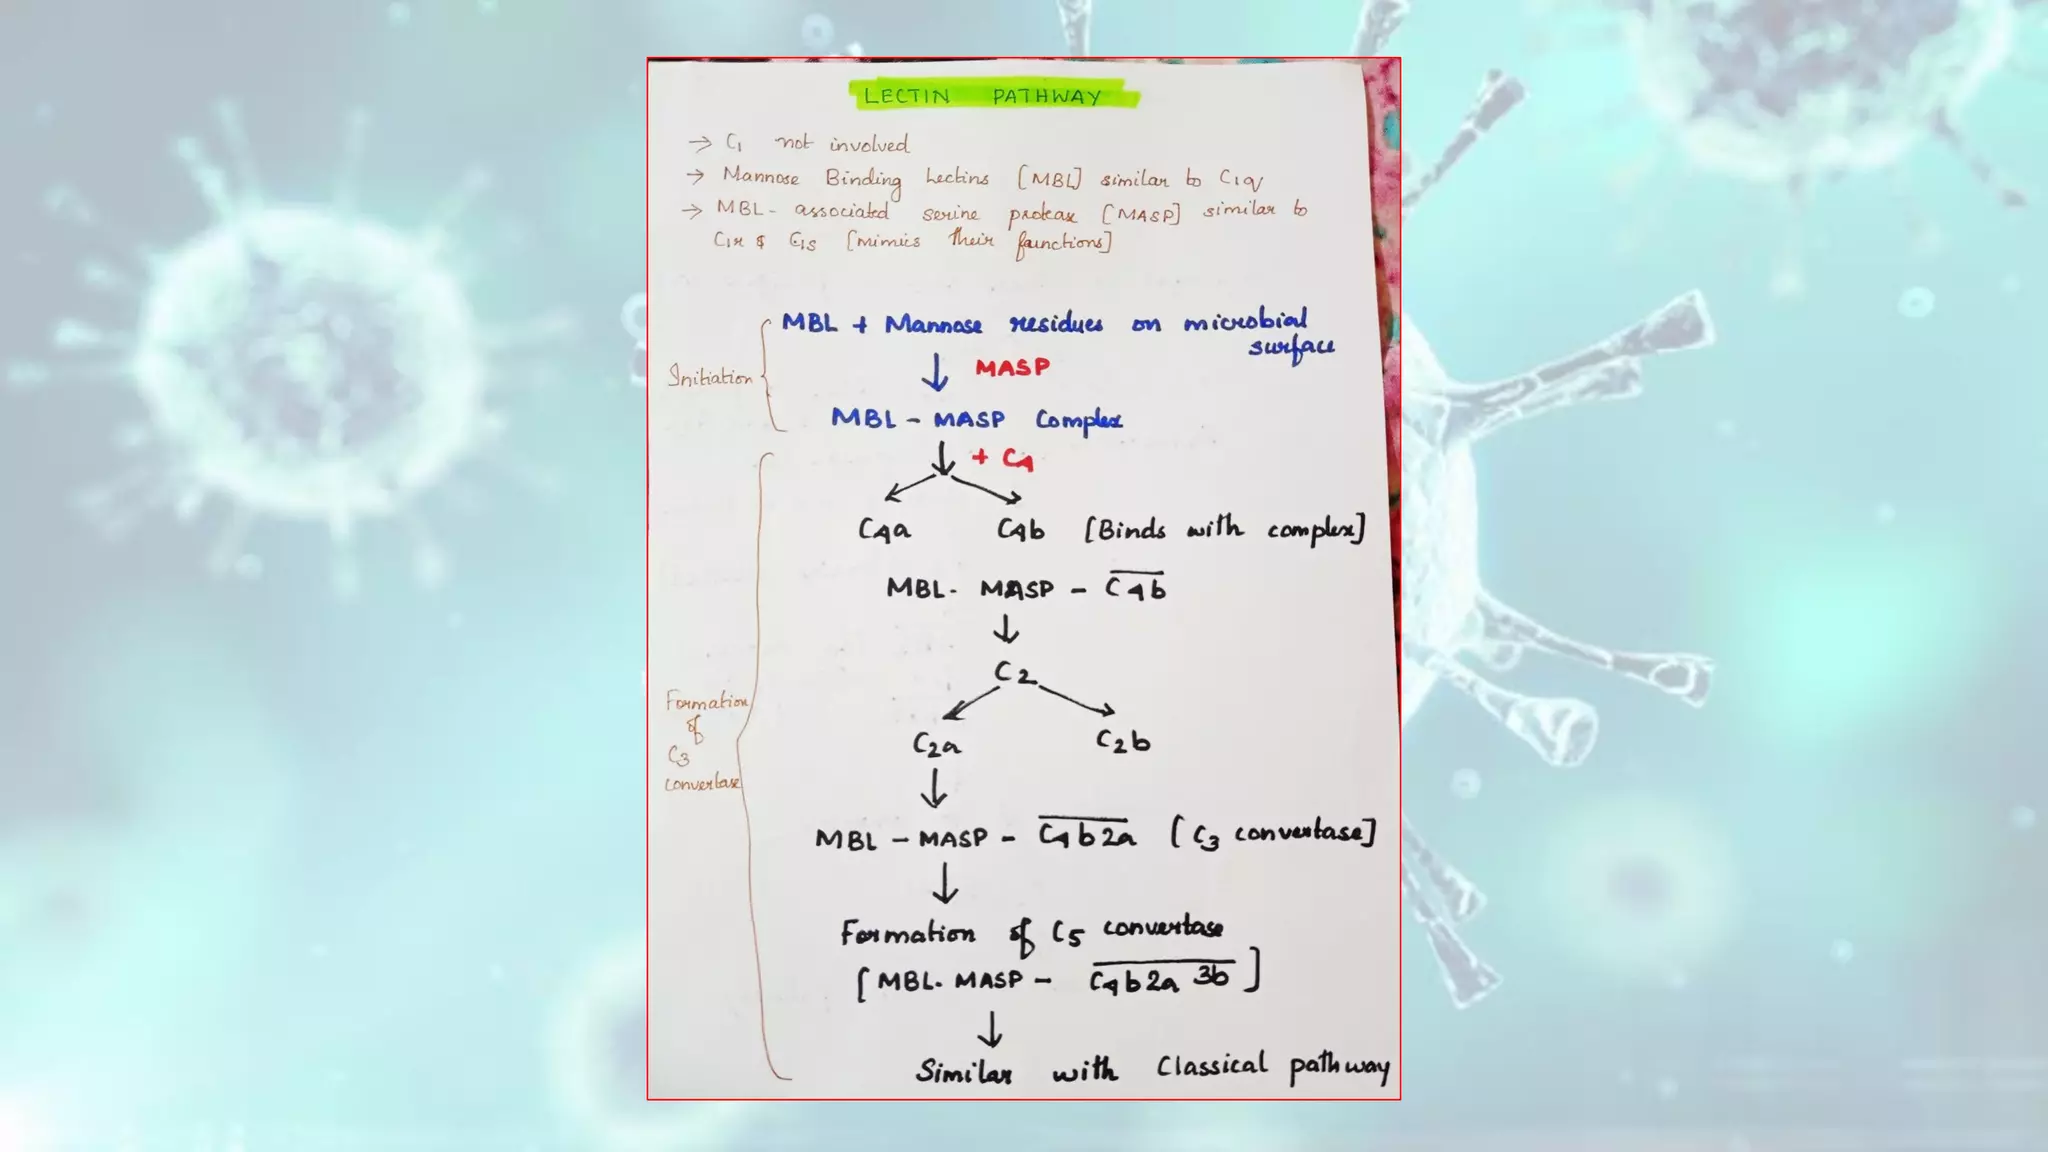 LECTIN PATHWAY
→ C1 not involved
→ Mannose Binding Lectins [MBL] similar to C1q
→ MBL - associated serine protease [MASP] similar to
C1r & C1s [mimics their functions]
MBL + Mannose residues on microbial
surface
↓ MASP
Initiation
MBL - MASP Complex
↓ + C4
C4a C4b [Binds with complex]
MBL - MASP - C4b
↓
C2
C2a C2b
Formation
of
C3
convertase
↓
MBL - MASP - C4b2a [C3 convertase]
↓
Formation of C5 convertase
[MBL - MASP - C4b2a 3b]
↓
Similar with Classical pathway